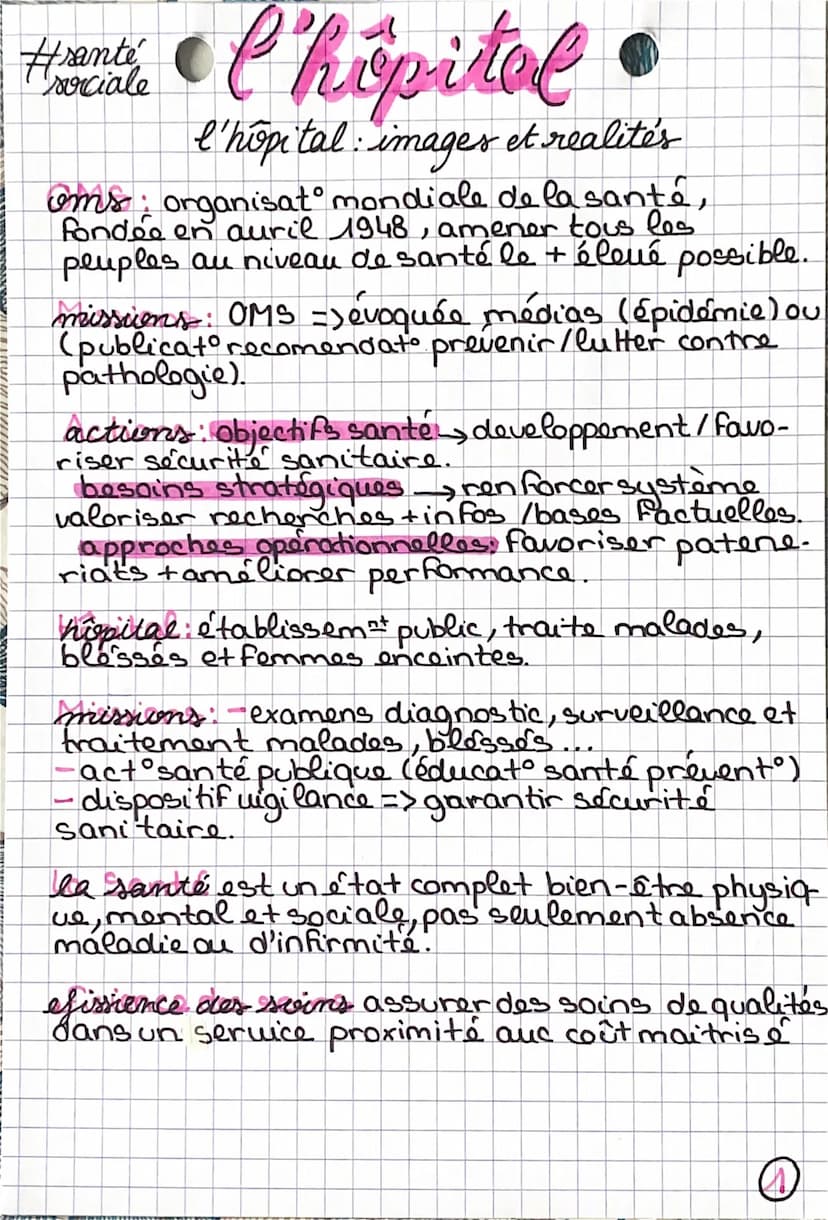 #santé sociale
l'hôpital
l'hôpital : images et realités
oms : organisat° mondiale de la santé,
fondée en avril 1948, amener tous les
peuples au niveau de santé le + élevé possible.
missions : OMS => évoquée médias (épidémie) ou
(publicat° recomendat° prévenir/lutter contre
pathologie).
actions : objectifs santé → developpement / favo-
riser sécurité sanitaire.
besoins stratégiques → renforcer système
valoriser recherches + infos / bases factuelles.
approches opérationnelles : favoriser patene-
riats + améliorer performance.
hôpital : établissemnt public, traite malades,
bléssés et femmes enceintes.
missions : - examens diagnostic, surveillance et
traitement malades, bléssés ...
- act° santé publique (éducat° santé prévent°)
- dispositif vigilance => garantir sécurité
sanitaire.
la santé est un état complet bien-être physiq-
ue, mental et sociale, pas seulement absence
maladie ou d'infirmité.
efissience des soins assurer des soins de qualités
dans un service proximité auc coût maitrisé
1